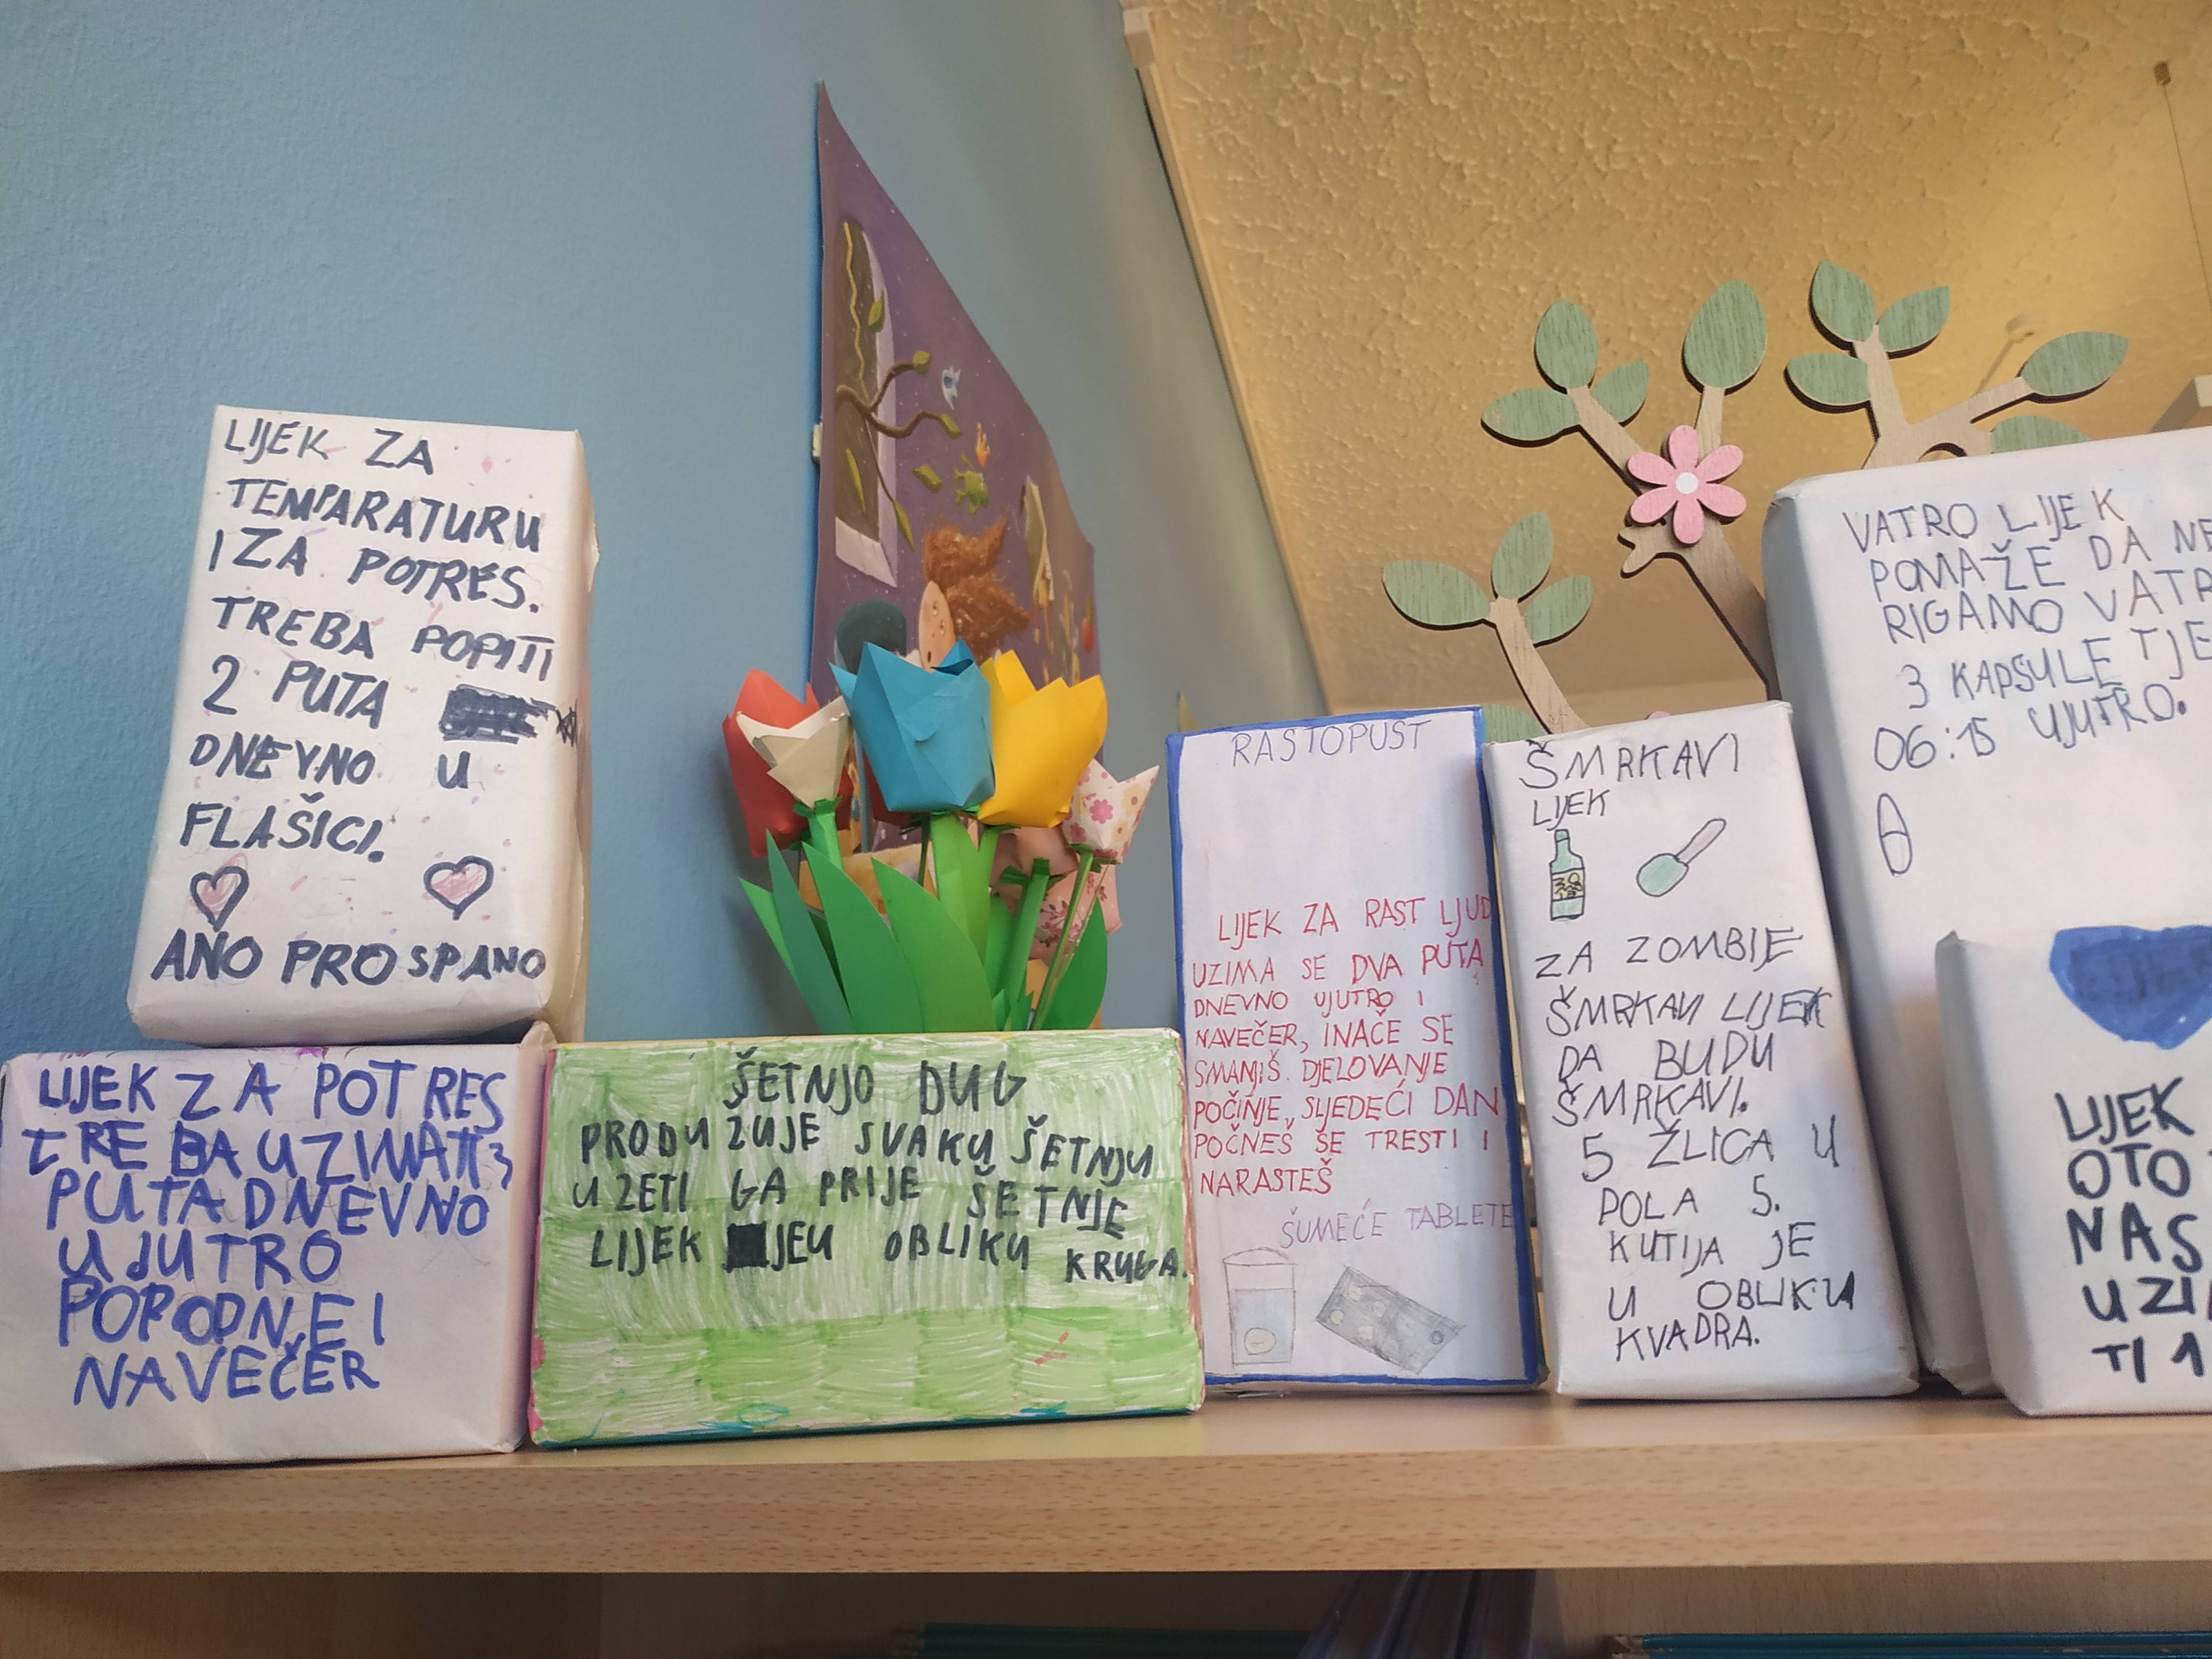 LIJEK ZA
TEMPARATURU
I ZA POTRES.
TREBA POPITI
2 PUTA
DNEVNO U
FLAŠICI.
ANO PROSPANO
LIJEK ZA POTRES
TREBA UZIMATI 3
PUTA DNEVNO
UJUTRO
POPODNE I
NAVEČER
ŠETNJO DUG
PRODUŽUJE SVAKU ŠETNJU
UZETI GA PRIJE ŠETNJE
LIJEK JE U OBLIKU KRUGA.
RASTOPUST
LIJEK ZA RAST LJUD
UZIMA SE DVA PUTA
DNEVNO UJUTRO I
NAVEČER, INAČE SE
SMANJIŠ. DJELOVANJE
POČINJE, SLJEDEĆI DAN
POČNEŠ SE TRESTI I
NARASTEŠ
ŠUMEĆE TABLETE
ŠMRKAVI
LIJEK
ZA ZOMBIJE
ŠMRKAVI LIJEK
DA BUDU
ŠMRKAVI.
5 ŽLICA U
POLA 5.
KUTIJA JE
U OBLIKU
KVADRA.
VATRO LIJEK
POMAŽE DA NE
RIGAMO VATR
3 KAPSULE TJE
06:15 UJUTRO.
LIJEK
OTO
NAS
UZI
TI 1